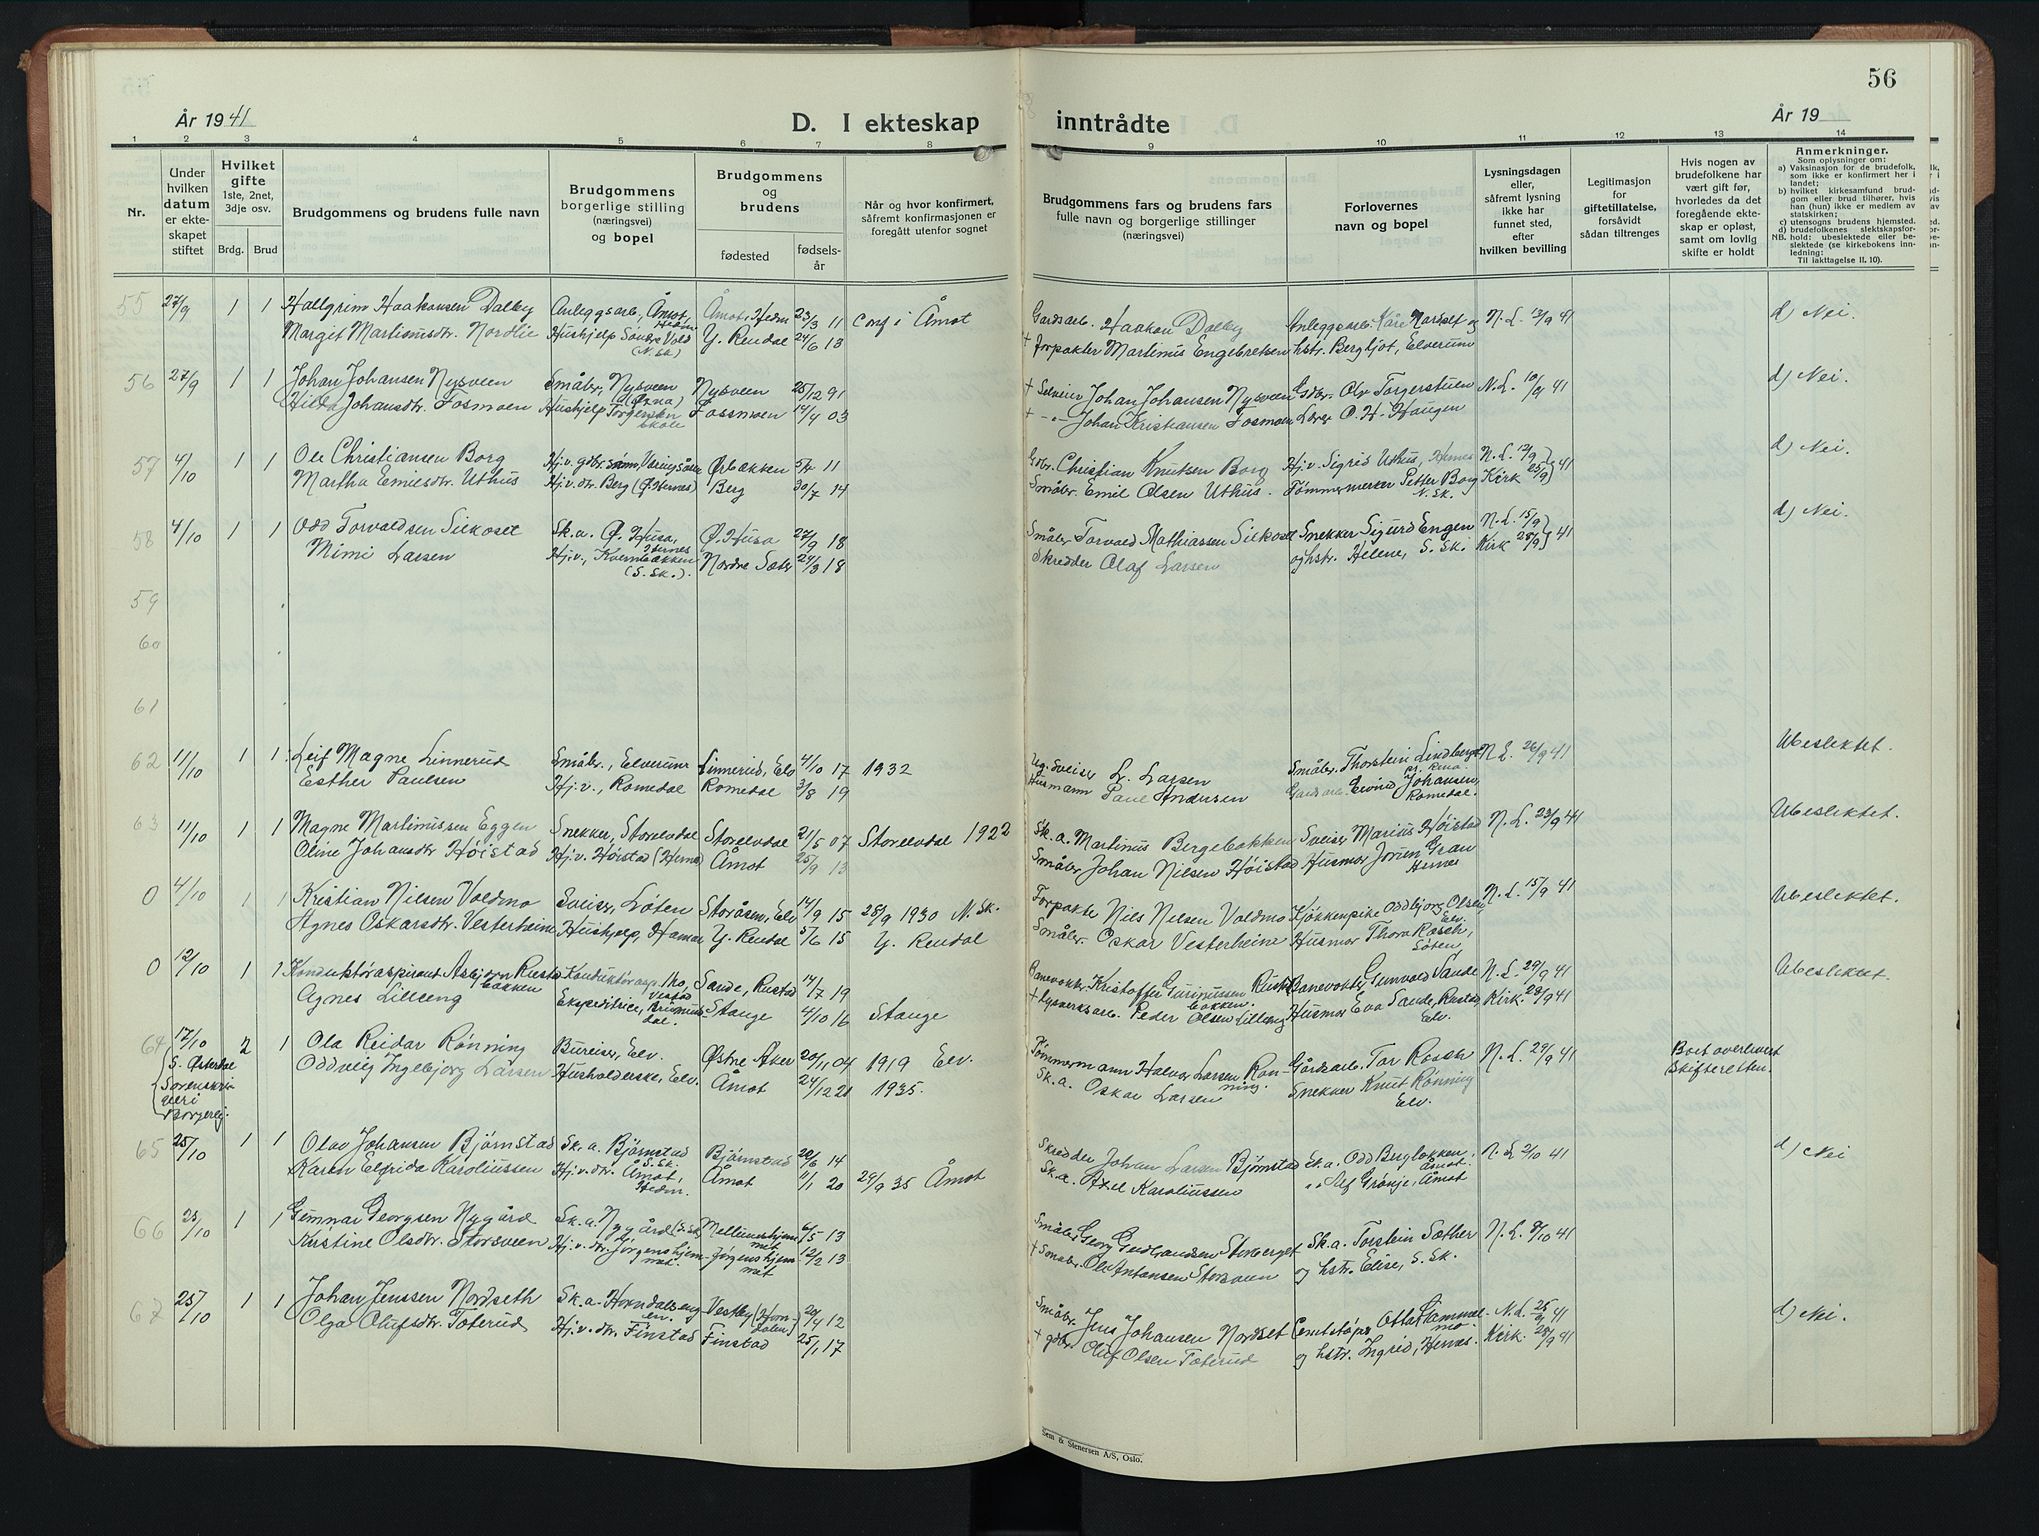 56
År 1941
D. I ekteskap inntrådte
År 19
1 2 3 4 5 6 7 8 9 10 11 12 13 14
Nr.
Under hvilken datum er ekteskapet stiftet
Hvilket gifte 1ste, 2net, 3dje osv.
Brdg. Brud
Brudgommens og brudens fulle navn
Brudgommens borgerlige stilling (næringsvei) og bopel
Brudgommens og brudens
fødested
fødsels-år
Når og hvor konfirmert, såfremt konfirmasjonen er foregått utenfor sognet
Brudgommens fars og brudens fars fulle navn og borgerlige stillinger (næringsvei)
Forlovernes navn og bopel
Lysningsdagen eller, såfremt lysning ikke har funnet sted, efter hvilken bevilling
Legitimasjon for giftetillatelse, forsåvidt sådan tiltrenges
Hvis nogen av brudefolkene har vært gift før, hvorledes da det foregående ekteskap er opløst, samt om lovlig skifte er holdt
Anmerkninger.
Som oplysninger om:
a) Vaksinasjon for de brudefolk, som ikke er konfirmert her i landet;
b) hvilket kirkesamfund brudgom eller brud tilhører, hvis han (hun) ikke er medlem av statskirken;
c) utensogns brudens hjemsted.
d) brudefolkenes slektskapsforhold: ubeslektede eller beslektede (se kirkebokens innledning:
NB.
Til iakttagelse II. 10).
55 27/9 1 1 Hallgrim Haakonsen Dalby Anleggsarb., Åmot, Hedm Åmot, Hedm 23/3 11 Conf i Åmot Gardsarb. Haakon Dalby Anleggsarb. Kåre Narholt og N. L. 13/9 41 d) Nei.
Margit Martinusdtr. Nordlie Hushjelp Søndre Vold (N. Sk) Y. Rendal 24/6 13 + forpakter Martinus Engebretsen hstr. Bergljot, Elverum
56 27/9 1 1 Johan Johansen Nysveen Småbr, Nysveen Nysveen 25/12 91 + Selveier Johan Johansen Nysveen Gdbr. Olv Torgerstuen N. L. 10/9 41 d) Nei.
Hilda Johansdtr. Fosmoen Hushjelp Torgerstuen skole Fossmoen 14/4 03 + -"- Johan Kristiansen Fosmoen Lærer O. H. Haugen
57 4/10 1 1 Ole Christiansen Borg Hj.v. gdbr. sønn, Væringsåsen Ørbækken 5/2 11 Gdbr. Christian Knutsen Borg Hj.v. Sigrid Uthus, Hernes N. L. 12/9 41 d) Nei.
Martha Emilsdtr. Uthus Hj.v. dtr. Berg (Ø. Hernes) Berg 30/7 14 Småbr. Emil Olsen Uthus. Tømmermerker Petter Borg N. Sk. Kirk 25/9
58 4/10 1 1 Odd Torvaldsen Silkoset Sk.a. Ø. Husa, Hernes Ø. Husa 27/9 18 Småbr Torvald Mathiassen Silkoset Snekker Sigurd Engen N. L. 15/9 41 d) Nei.
Mimi Larsen Hj.v., Kvernbækken (S. Sk.). Nordre Sæter 24/3 18 Skredder Olaf Larsen og hstr. Helene, S. Sk. Kirk 28/9
59
60
61
62 11/10 1 1 Leif Magne Linnerud Småbr., Elverum Linnerud, Elv 4/10 17 1932 Ug. Sveiser L. Larsen Småbr. Thorstein Lindberget pr. Rena. N. L. 26/9 41 Ubeslektet.
Esther Paulsen Hj.v., Romedal Romedal 3/8 19 Husmann Paul Andersen Gardsarb. Eivind Johansen, Romedal.
63 11/10 1 1 Magne Martinussen Eggen Snekker, Storelvdal Storelvdal 21/5 07 Storelvdal 1922 Sk.a. Martinus Bergebakken Sveiser Marius Høistad N. L. 23/9 41 Ubeslektet.
Oline Johansdtr Høistad Hj.v. Høistad (Hernes) Åmot 25/9 13 Småbr Johan Nilsen Høistad Husmor Jorun Grau Hernes
0 4/10 1 1 Kristian Nilsen Voldmo Sveiser, Løten Storåsen, Elv 14/9 15 28/9 1930 N. Sk. Forpakter Nils Nilsen Voldmo Kjøkkenpike Oddbjorg Olsen, Elv. N. L. 15/9 41 Ubeslektet.
Agnes Oskarsdtr. Vesterheim Hushjelp, Hamar Y. Rendal 5/6 15 Y. Rendal Småbr. Oskar Vesterheim Husmor Thora Rasch, Løten.
0 12/10 1 1 Konduktøraspirant Asbjørn Rustadbakken Konduktørasp. Sande, Rustad 14/7 19 Banevokter Kristoffer Gurinussen Rustadbakken. Banevokter Gunvald Sande N. L. 29/9 41 Ubeslektet.
Agnes Lilleng Ekspeditrice, Brumunddal. Stange 4/10 16 Stange Peder Olsen Lilleng Husmor Eva Sande, Rustad, Elv. Kirk. 28/9 41
64 17/10 2 1 Ola Reidar Rønning Bureiser, Elv. Østre Aker 20/11 04 1919 Elv. Tømmermann Halvor Larsen Rønning. Gårdsarb. Tor Rasch N. L. 29/9 41 Boet overlevert skifteretten.
S. Østerdal Sorenskriveri Borgerlig. Oddveig Ingebjorg Larsen Husholderske, Elv. Åmot 24/12 21 1935. Sk.a. Oskar Larsen Snekker Knut Rønning Elv.
65 25/10 1 1 Olav Johansen Bjørnstad Sk.a. Bjørnstad S. Sk. Bjørnstad 20/6 14 Skredder Johan Larsen Bjørnstad Sk.a. Odd Bergløkken, Åmot. N. L 2/10 41 d) Nei
Karen Elfrida Karoliussen Hj.v. dtr. Åmot, Hedm. Åmot 11/1 20 29/9 35 Åmot Sk.a. Axel Karoliussen " Alf Grønje, Åmot
66 25/10 1 1 Gunnar Georgsen Nygård Sk.a. Nygård (S. Sk.) Mellemhjemmet 6/5 13 Småbr. Georg Gudbrandsen Storberget Sk.a. Torstein Sæther N. L. 8/10 41
Kristine Olsdtr. Storsveen Hj.v. dtr. Jørgenshjemmet. Jørgenshjemmet 12/2 13 + Småbr. Ole Antonsen Storsveen og hstr. Elise, S. Sk.
67 25/10 1 1 Johan Jenssen Nordseth Sk.a. Horndalsengen. Vestby (Horndalen) 29/4 12 Småbr. Jens Johansen Nordset Cementstøper Otto Hammelmo. N. L. 25/9 41 d) Nei.
Olga Olufsdtr. Tøterud Hj.v. dtr. Finstad Finstad 25/1 17 + gdbr. Oluf Olsen Tøterud og hstr. Ingrid, Hernes. Kirk. 28/9 41
Sem & Stenersen A/S, Oslo.